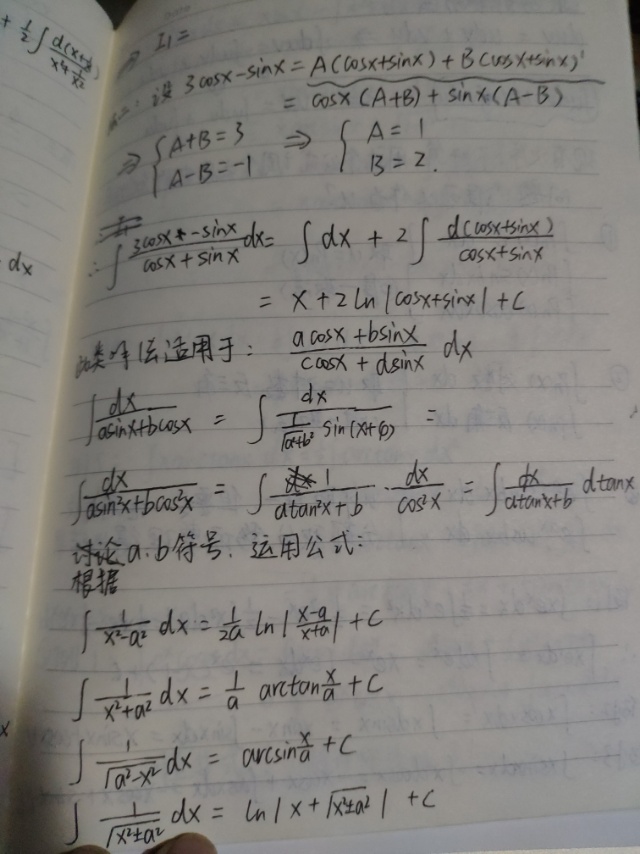 + 1/2 ∫ d(x+
x²+1/x²
dx
⇒ I₁=
设 3cosx-sinx = A(cosx+sinx) + B(cosx+sinx)'
= cosx(A+B) + sinx(A-B)
⇒ { A+B=3 ⇒ { A=1
A-B=-1 B=2.
∴ ∫ (3cosx-sinx)/(cosx+sinx) dx = ∫dx + 2∫ d(cosx+sinx)/(cosx+sinx)
= x+2ln|cosx+sinx|+C
此类方法适用于: (acosx+bsinx)/(ccosx+dsinx) dx
∫ dx/(asinx+bcosx) = ∫ dx/(1/√(a²+b²) sin(x+φ)) =
∫ dx/(asin²x+bcos²x) = ∫ 1/(atan²x+b) · dx/cos²x = ∫ /(atan²x+b) dtanx
讨论a.b符号.运用公式:
根据
∫ 1/(x²-a²) dx = 1/2a ln|(x-a)/(x+a)| + C
∫ 1/(x²+a²) dx = 1/a arctan x/a + C
∫ 1/√(a²-x²) dx = arcsin x/a + C
∫ 1/√(x²±a²) dx = ln|x+√(x²±a²)| + C